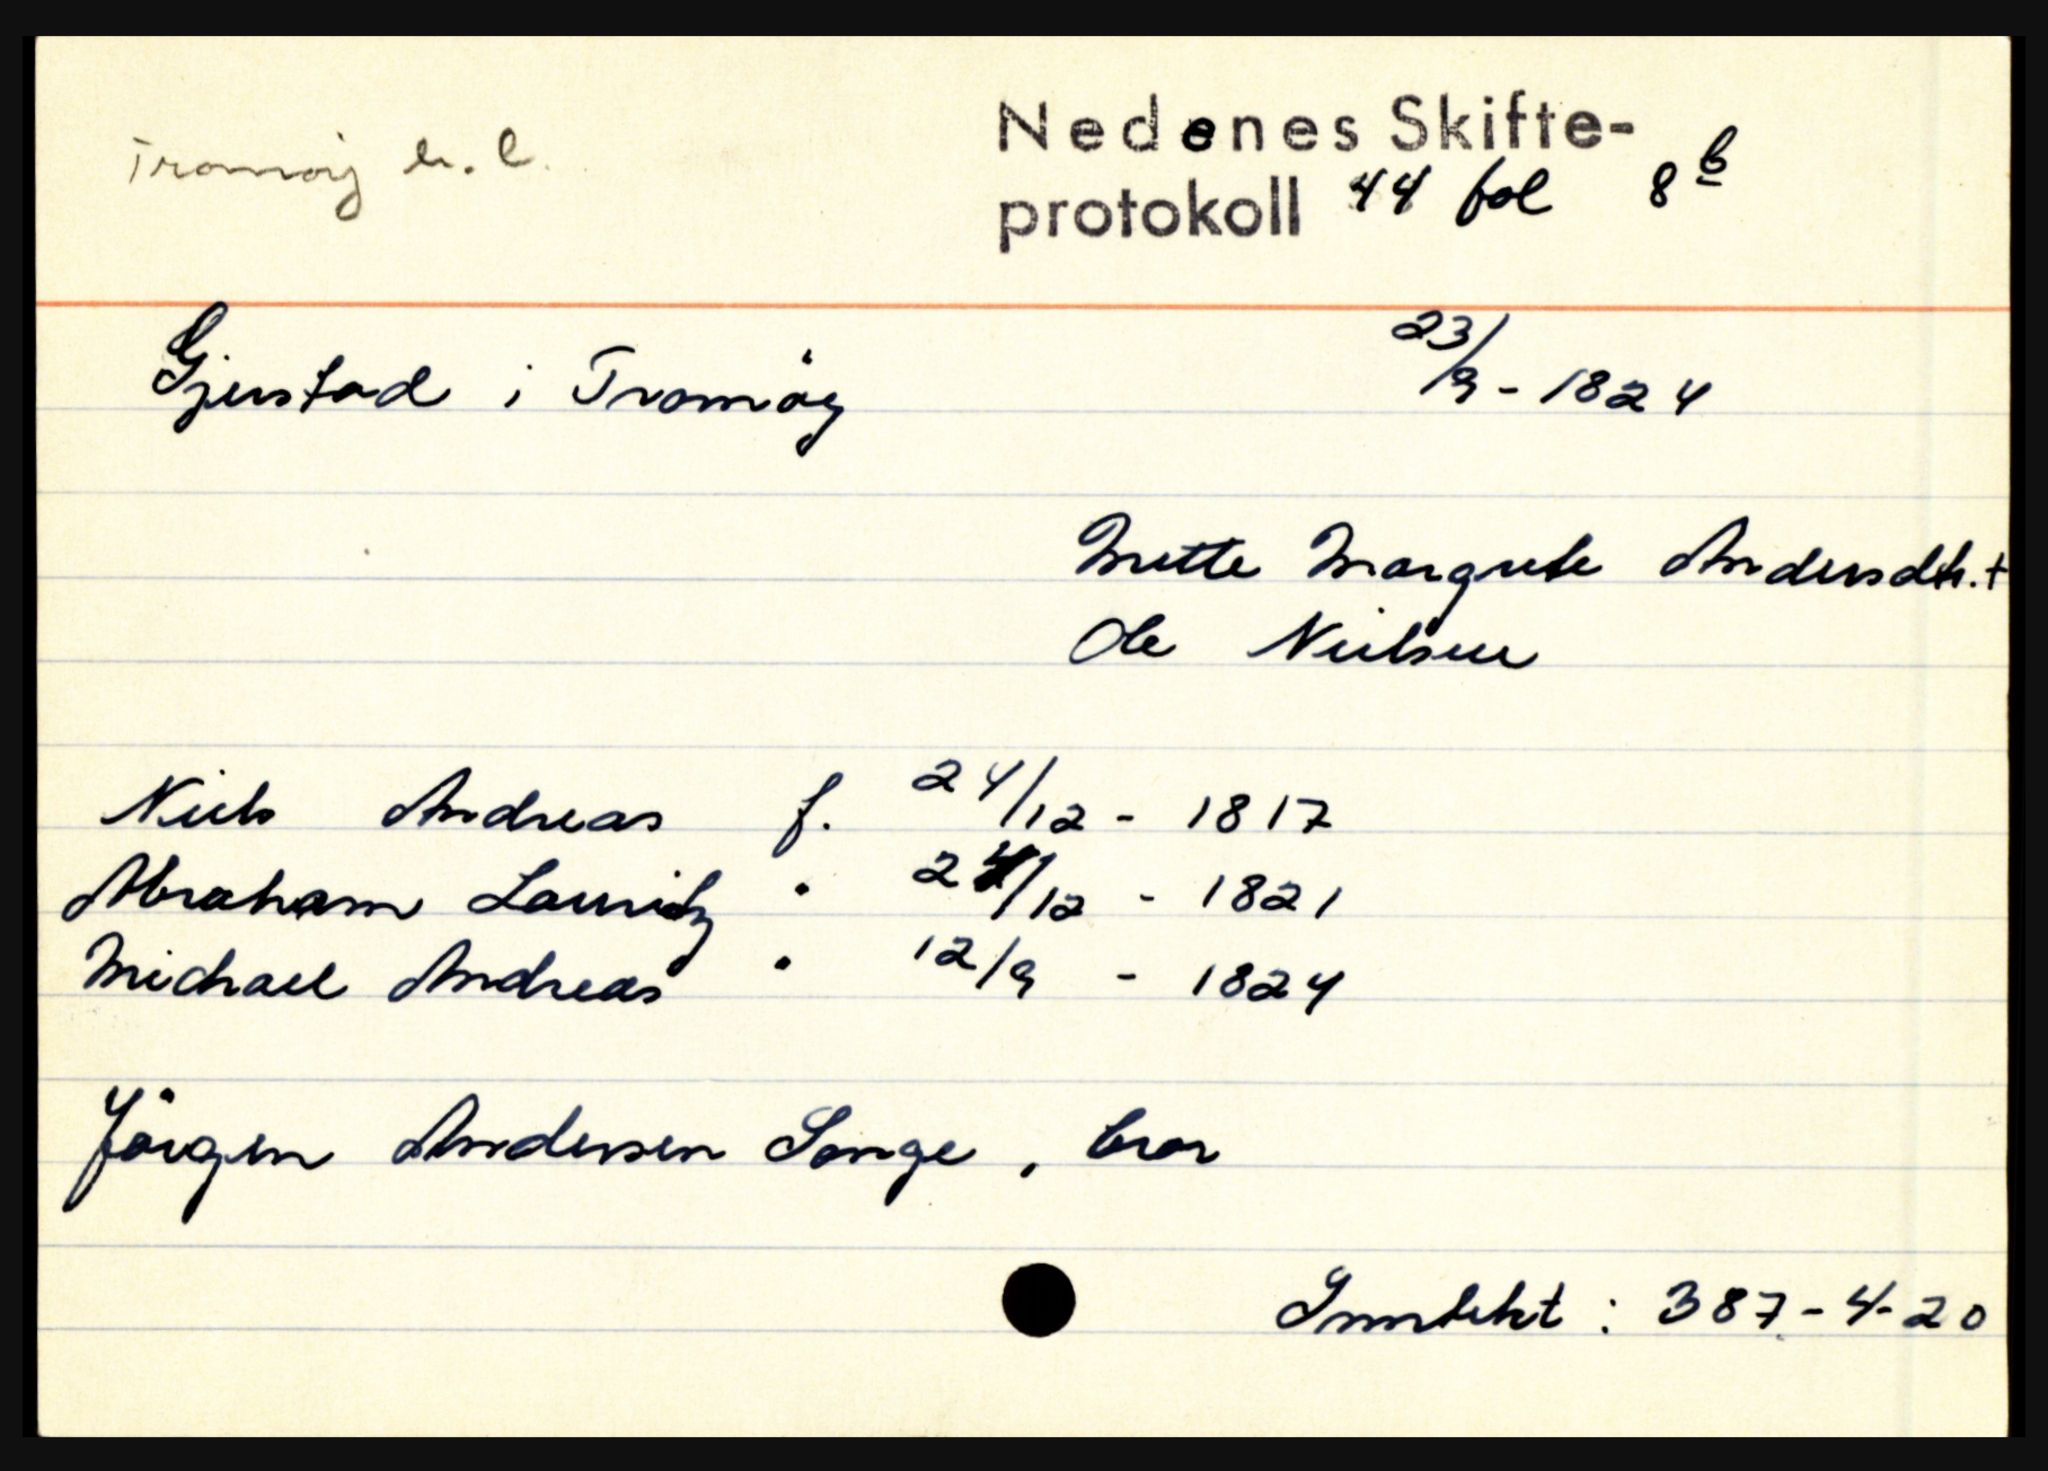 Tromöy h. l.
Nedenes Skifte-
protokoll 44 fol 8 b
Gjerstad i Tromöy 23/9 - 1824
Mette Margrete Andersdtr. +
Ole Nielsen
Niels Andreas f. 24/12 - 1817
Abraham Lauritz " 24/12 - 1821
Michael Andreas " 12/9 - 1824
Jörgen Andersen Songe, bror
Inntekt : 387-4-20